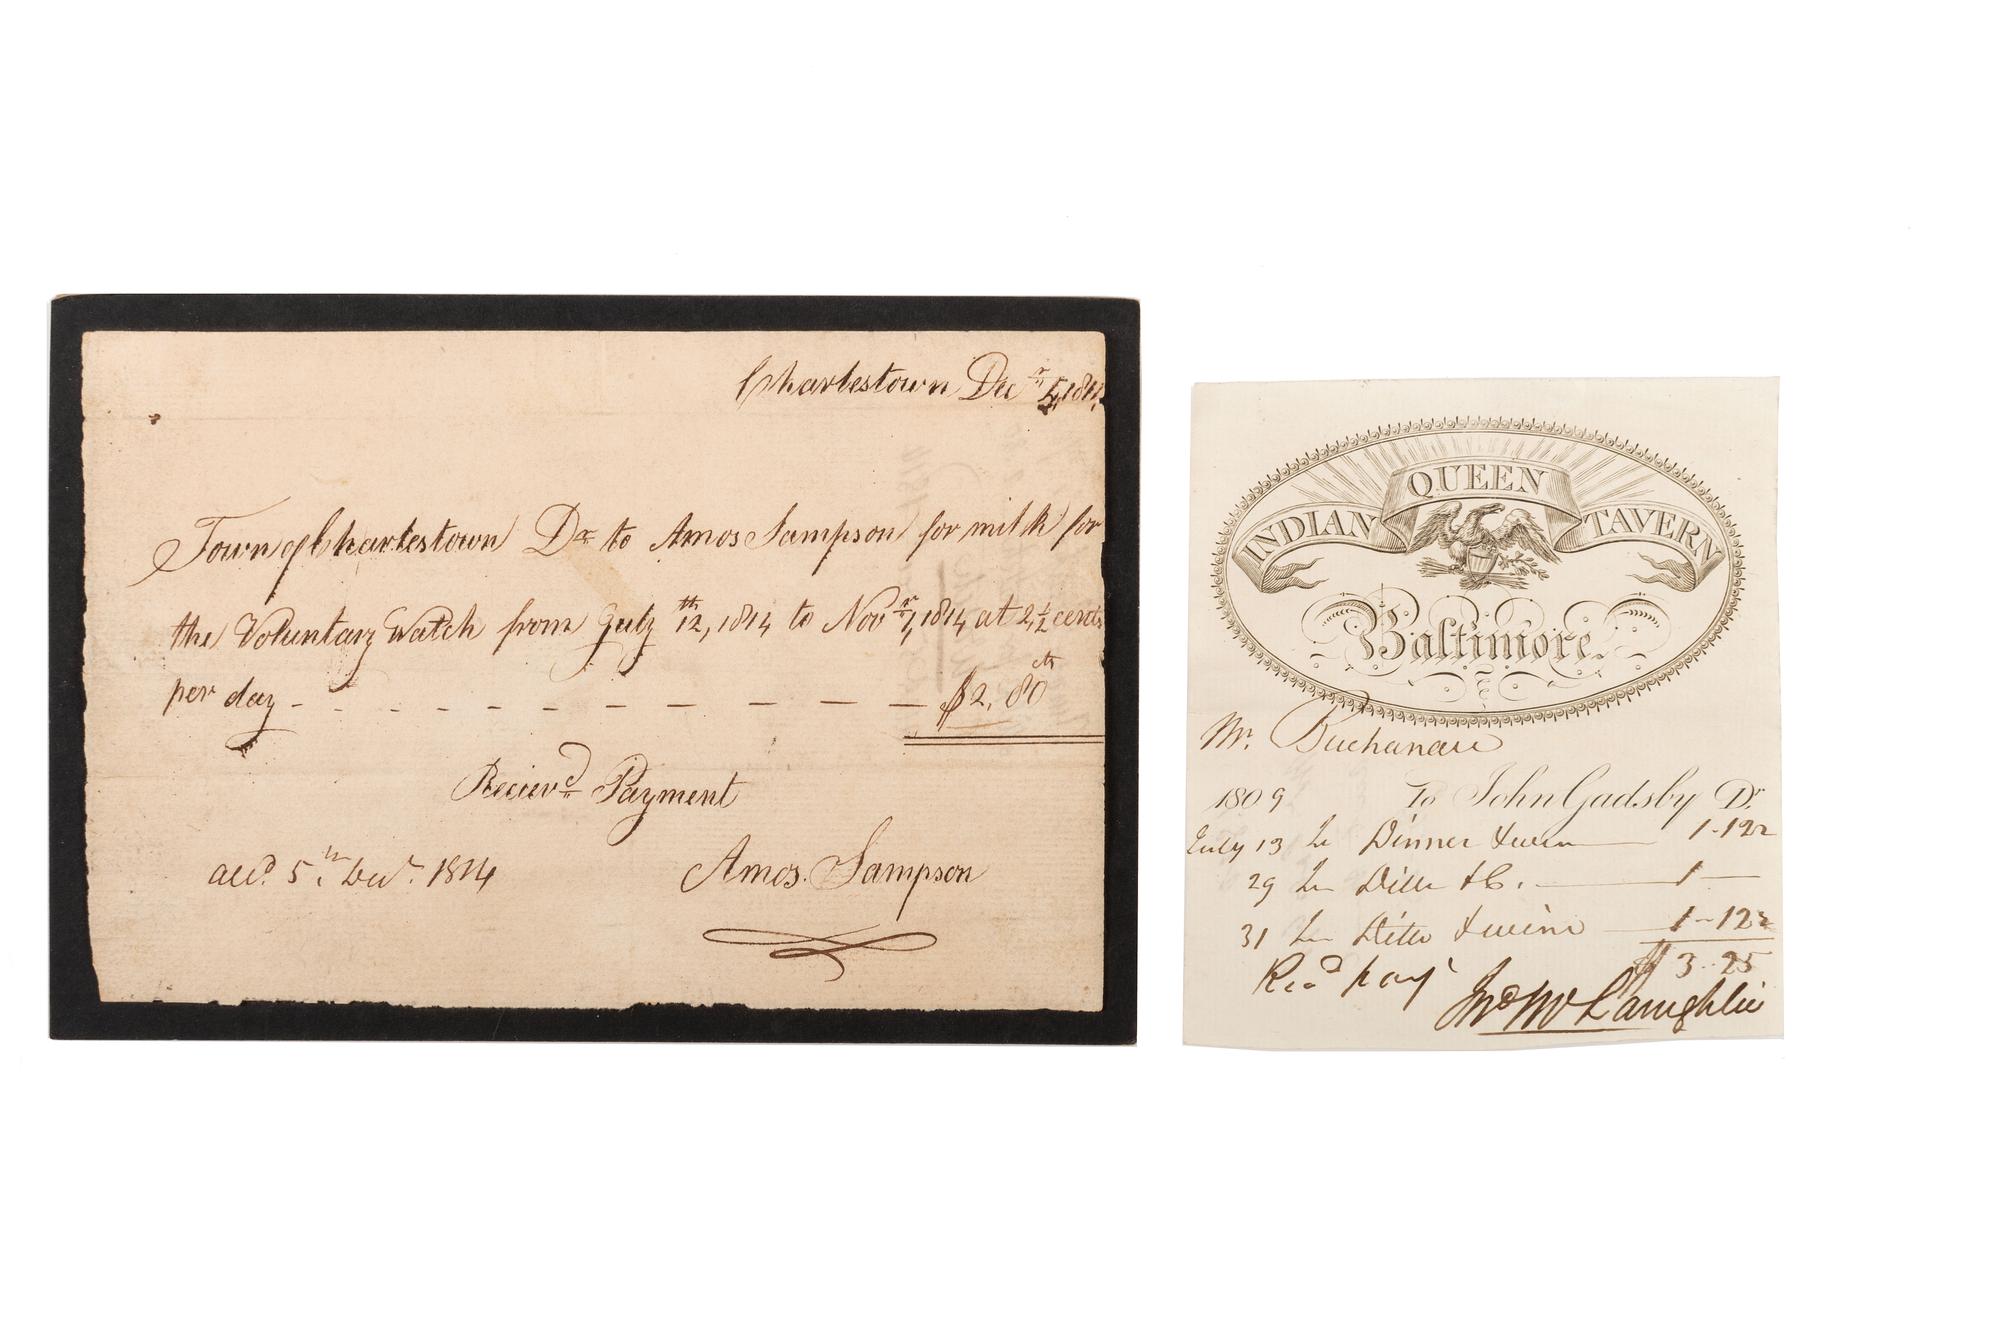 Charlestown Decr 5, 1814
Town of Charlestown Dr to Amos Sampson for milk for
the Voluntary Watch from July 12th, 1814 to Novr 1, 1814 at 2 1/2 cents
per day - - - - - - - - - - - - $2,80 cts
Recievd Payment
5th Decr 1814
Amos Sampson
INDIAN QUEEN TAVERN
Baltimore.
Mr. Buchanan
1809 To John Gadsby Dr
July 13 To Dinner & wine 1-12½
29 To Ditto &C. 1 —
31 To Ditto & wine 1-12½
$ 3-25
Recd pay
Jno McLaughlin